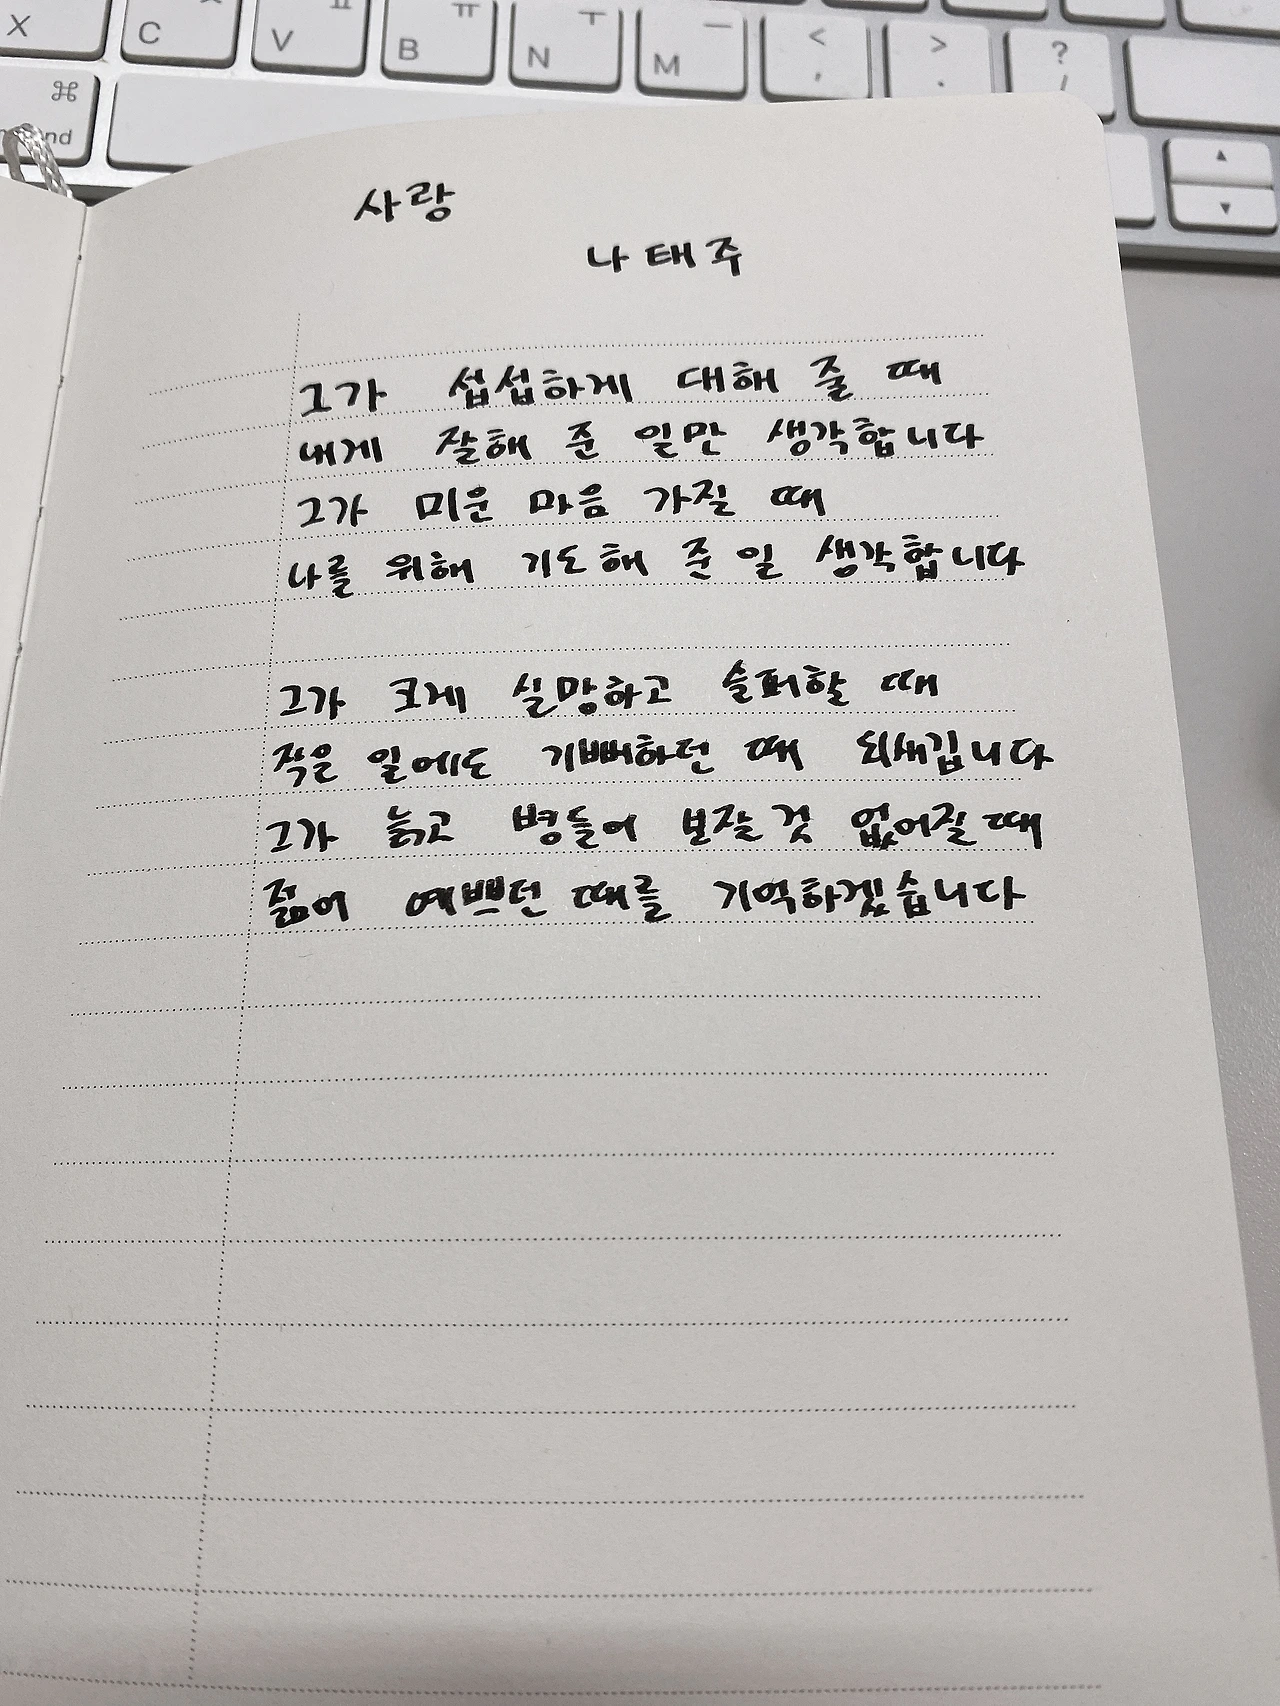 X
C
V
ㅠ
B
ㅜ
N
ㅡ
M
<
,
>
.
?
/
⌘
nd
▲
▼
사랑
나태주
그가 섭섭하게 대해 줄 때
내게 잘해 준 일만 생각합니다
그가 미운 마음 가질 때
나를 위해 기도해 준 일 생각합니다
그가 크게 실망하고 슬퍼할 때
작은 일에도 기뻐하던 때 되새깁니다
그가 늙고 병들어 보잘 것 없어질 때
젊어 예쁘던 때를 기억하겠습니다